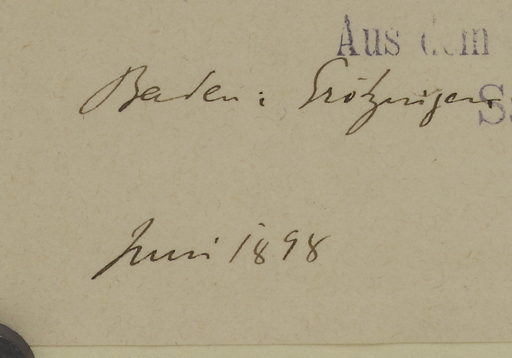 Aus dem
Baden: Grötzingen.
Juni 1898